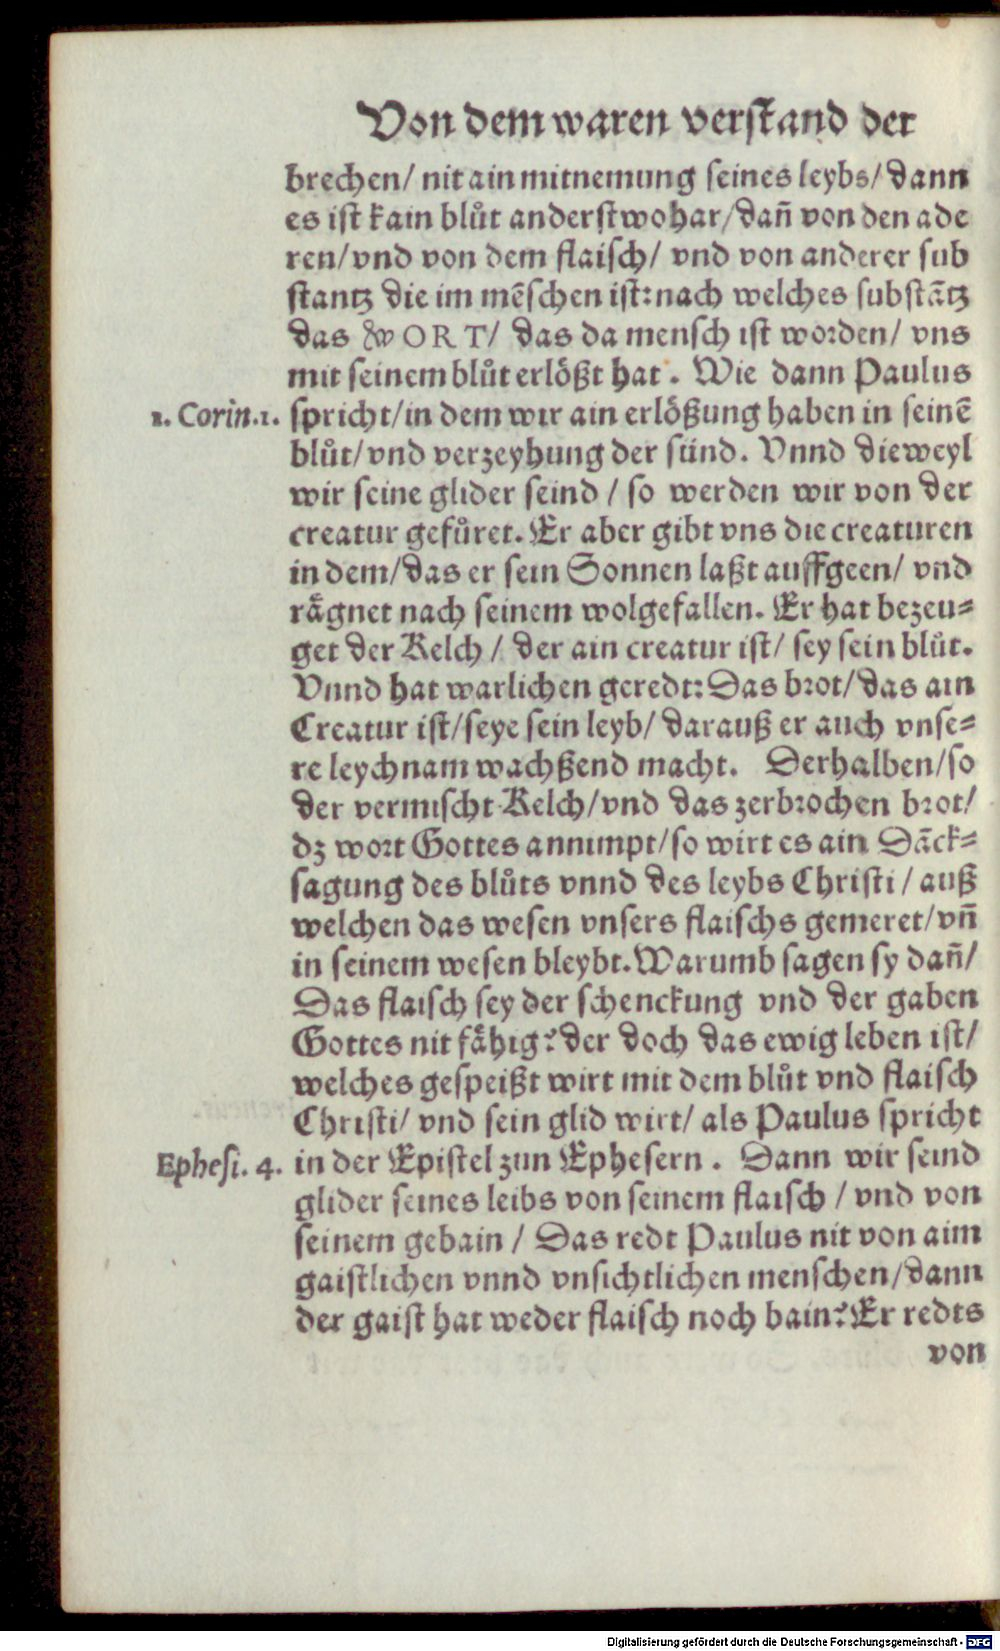 Von dem waren verſtand der
brechen/ nit ain mitnemung ſeines leybs/ dann
es iſt kain blůt anderſtwohar/ dañ von den ade
ren/ vnd von dem flaiſch/ vnd von anderer ſub
ſtantz die im mẽſchen iſt: nach welches ſubſtãtz
das WORT/ das da menſch iſt worden/ vns
mit ſeinem blůt erlößt hat. Wie dann Paulus
1. Corin. 1. ſpricht/ in dem wir ain erlößung haben in ſeinẽ
blůt/ vnd verzeyhung der ſünd. Vnnd dieweyl
wir ſeine glider ſeind / ſo werden wir von der
creatur gefůret. Er aber gibt vns die creaturen
in dem/ das er ſein Sonnen laßt auffgeen/ vnd
raͤgnet nach ſeinem wolgefallen. Er hat bezeu-
get der Kelch / der ain creatur iſt/ ſey ſein blůt.
Vnnd hat warlichen geredt: Das brot/ das ain
Creatur iſt/ ſeye ſein leyb/ darauß er auch vnſe-
re leychnam wachßend macht. Derhalben/ ſo
der vermiſcht Kelch/ vnd das zerbrochen brot/
dz wort Gottes annimpt/ ſo wirt es ain Dãck-
ſagung des blůts vnnd des leybs Chriſti / auß
welchen das weſen vnſers flaiſchs gemeret/ vñ
in ſeinem weſen bleybt. Warumb ſagen ſy dañ/
Das flaiſch ſey der ſchenckung vnd der gaben
Gottes nit faͤhig? der doch das ewig leben iſt/
welches geſpeißt wirt mit dem blůt vnd flaiſch
Chriſti/ vnd ſein glid wirt/ als Paulus ſpricht
Epheſi. 4. in der Epiſtel zun Epheſern. Dann wir ſeind
glider ſeines leibs von ſeinem flaiſch / vnd von
ſeinem gebain / Das redt Paulus nit von aim
gaiſtlichen vnnd vnſichtlichen menſchen/ dann
der gaiſt hat weder flaiſch noch bain? Er redts
von
Digitalisierung gefördert durch die Deutsche Forschungsgemeinschaft - DFG